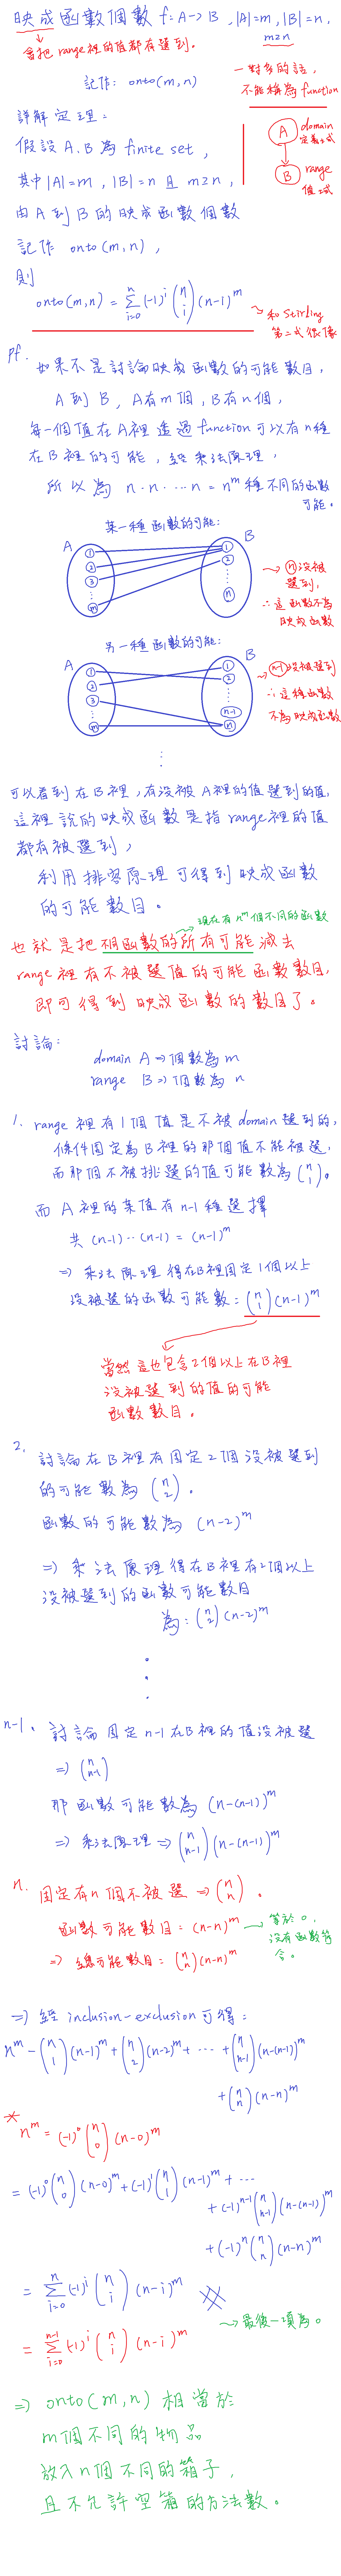 映成函數個數 f: A→B , |A|=m, |B|=n,
m≥n
會把 range 裡的值都有選到。
記作: onto(m,n)
一對多的話,
不能稱為 function
A domain 定義域
B range 值域
詳解定理:
假設 A、B 為 finite set,
其中 |A|=m, |B|=n 且 m≥n,
由 A 到 B 的映成函數個數
記作 onto(m,n),
則
onto(m,n) = Σ_{i=0}^{n} (-1)^i (n i) (n-i)^m
和 Stirling
第二式很像
pf. 如果不是討論映成函數的可能數目,
A 到 B, A有m個, B有n個,
每一個值在A裡透過function可以有n種
在B裡的可能, 經乘法原理,
所以為 n·n···n = n^m 種不同的函數
可能。
某一種函數的可能:
A B
1 1
2 2
3 ⋮
⋮ n
m
n 沒被
選到,
∴這函數不為
映成函數
另一種函數的可能:
A B
1 1
2 2
3 ⋮
⋮ n-1
m n
n-1 沒被選到
∴這種函數
不為映成函數
⋮
可以看到在B裡, 有沒被A裡的值選到的值,
這裡說的映成函數是指range裡的值
都有被選到,
利用排容原理可得到映成函數
的可能數目。
現在有 n^m 個不同的函數
也就是把不同函數的所有可能減去
range裡有不被選值的可能函數數目,
即可得到映成函數的數目了。
討論:
domain A ⇒ 個數為 m
range B ⇒ 個數為 n
1. range 裡有1個值是不被domain選到的,
條件固定為B裡的那個值不能被選,
而那個不被挑選的值可能數為 (n 1)。
而 A 裡的某值有 n-1 種選擇
共 (n-1)··(n-1) = (n-1)^m
⇒ 乘法原理得在B裡固定1個以上
沒被選的函數可能數: (n 1)(n-1)^m
當然這也包含2個以上在B裡
沒被選到的值的可能
函數數目。
2. 討論在B裡有固定2個沒被選到
的可能數為 (n 2)。
函數的可能數為 (n-2)^m
⇒ 乘法原理得在B裡有2個以上
沒被選到的函數可能數目
為: (n 2)(n-2)^m
⋮
n-1. 討論固定n-1在B裡的值沒被選
⇒ (n n-1)
那函數可能數為 (n-(n-1))^m
⇒ 乘法原理 ⇒ (n n-1)(n-(n-1))^m
n. 固定有n個不被選 ⇒ (n n)。
函數可能數目: (n-n)^m
⇒ 總可能數目: (n n)(n-n)^m
等於0,
沒有函數符
合。
⇒ 經 inclusion-exclusion 可得:
n^m - (n 1)(n-1)^m + (n 2)(n-2)^m + ··· + (n n-1)(n-(n-1))^m
+ (n n)(n-n)^m
* n^m = (-1)^0 (n 0)(n-0)^m
= (-1)^0 (n 0)(n-0)^m + (-1)^1 (n 1)(n-1)^m + ···
+ (-1)^{n-1} (n n-1)(n-(n-1))^m
+ (-1)^n (n n)(n-n)^m
= Σ_{i=0}^{n} (-1)^i (n i)(n-i)^m
最後一項為0。
= Σ_{i=0}^{n-1} (-1)^i (n i)(n-i)^m
⇒ onto(m,n) 相當於
m個不同的物品
放入n個不同的箱子,
且不允許空箱的方法數。